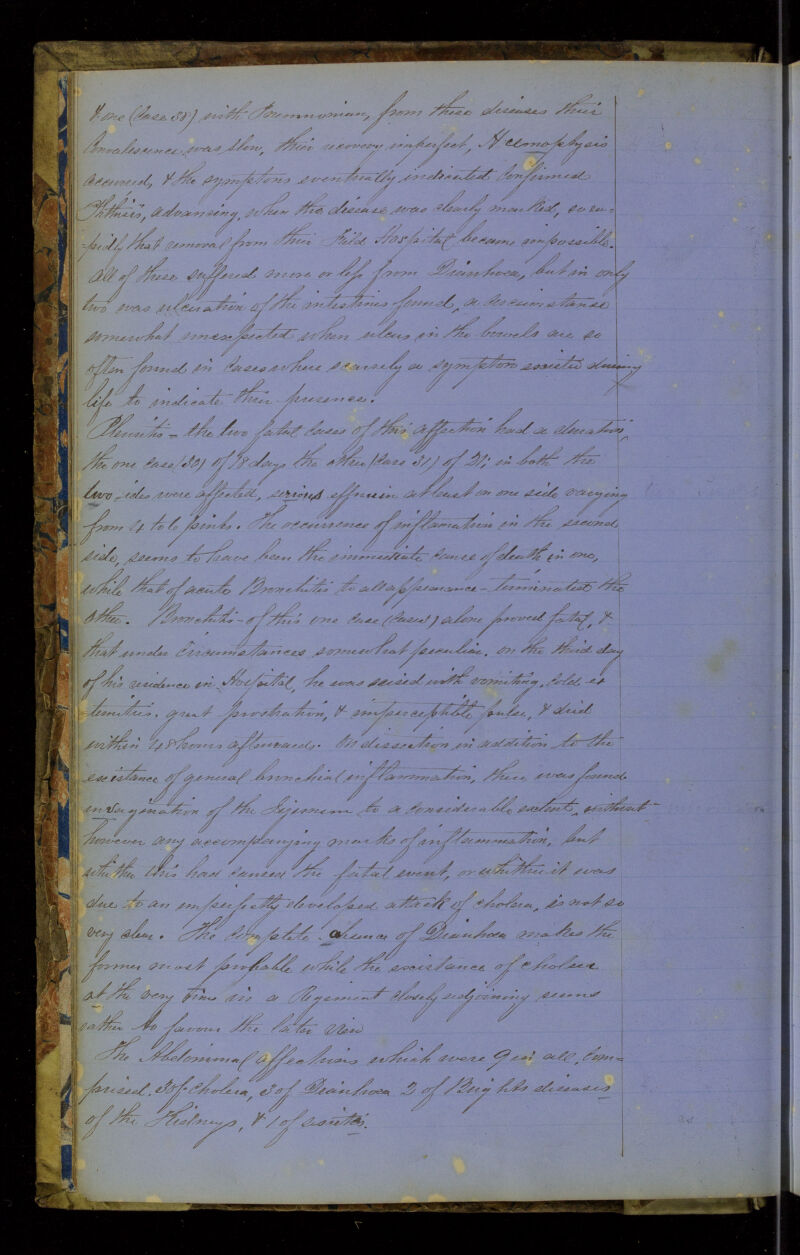 & one (Case 38) with Pneumonian, from these diseases their
Convalescence was slow, their recovery imperfect, Hæmoptysis
occurred, & the symptoms eventually indicated Confirmed
Phthisis, advancing, when the disease was clearly marked, so ra-
-pidly that removal from their Field Hospital became impossible.
All of these suffered more or less from Diarrhoea, but in only
two was ulceration of the intestines found, a circumstance
somewhat unexpected when ulcers in the bowels are so
often found in Cases where scarcely a symptom existed during
life to indicate their presence.
Pleuritis - the two fatal Cases of this affection had a duration,
the one case (30) of 18 days the other (Case 31) of 21; in both the
two ides were affected, serious effusion at least on one side varying
from 4 to 6 pints. The occurrence of inflamation in the second
side, seems to have been the immediate cause of death in one,
while that of acute Bronchitis to all appearance - terminated the
other. Bronchitis - of this one case alone proved fatal, &
that under Circumstances somewhat peculiar. on the third day
of his residence in Hospital, he was seised with vomiting, Cold ex
temities. great prostration, & imperceptible pulse, & died
within 48 hours afterwards. On dissection in addition to the
existance of general bronchial inflammation, there was found
invagination of the Jejunum to a considerable extent, without
however any accompanying marks of inflammation, but
whether this had caused the fatal event, or whether it was
due to an imperfectly developed attack of cholera, is not so
very clear. The complete absence of Diarrhoea makes the
former most probable while the existance of cholera
at the very time in a Regiment closely adjoining seems
rather to favour the later view
The Abdominal affections which were 9 in all, Com=
prised. 3 of cholera, 3 of Diarrhoea 2 of Brights diseases
of the Kidneys, & 1 of